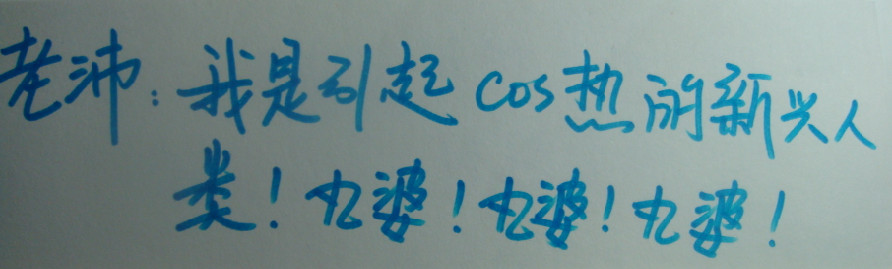 老沛:我是引起cos热的新兴人
类!九婆!九婆!九婆!